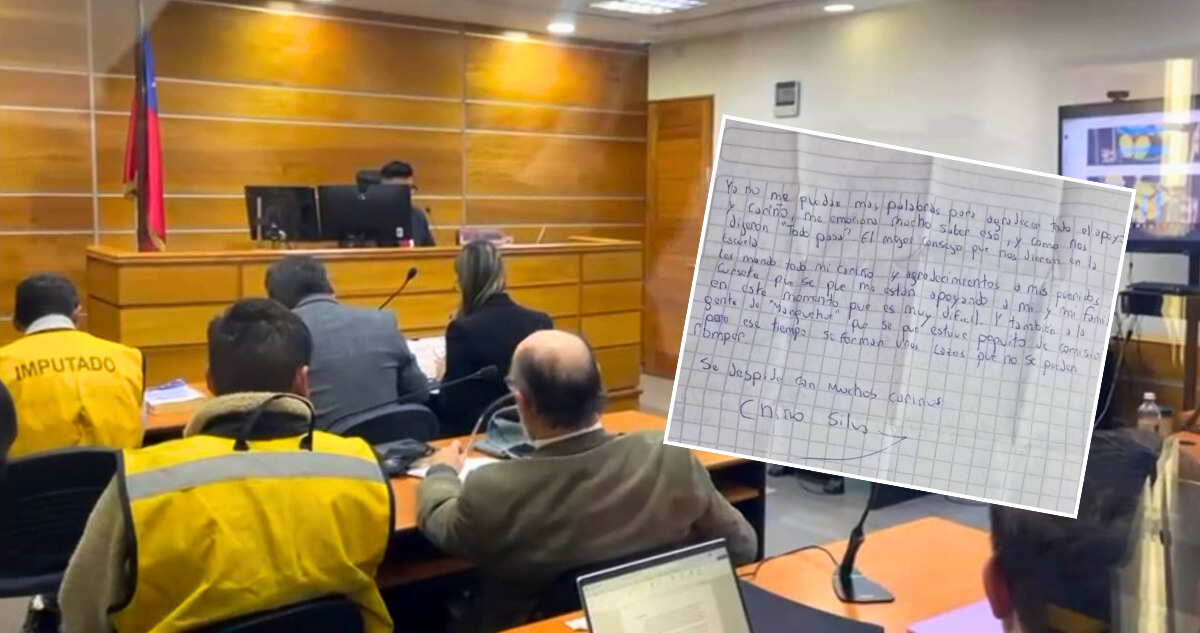 IMPUTADO
Ya no me puedan mas palabras para agradecer todo el apoyo
y cariño, me emociona mucho saber eso, y como nos
dijeron "Todo pasa" El mejor consejo que nos dieron en la
Escuela.
Les mando todo mi cariño y agradecimientos a mis queridos
que se que me estan apoyando a mi y mi fami
en este momento que es muy dificil. Y tambien a la
gente de que se que estuve poquito de comisio
pero ese tiempo se forman unos lazos que no se pueden
romper.
Se despide con muchos cariños
Chino Silva